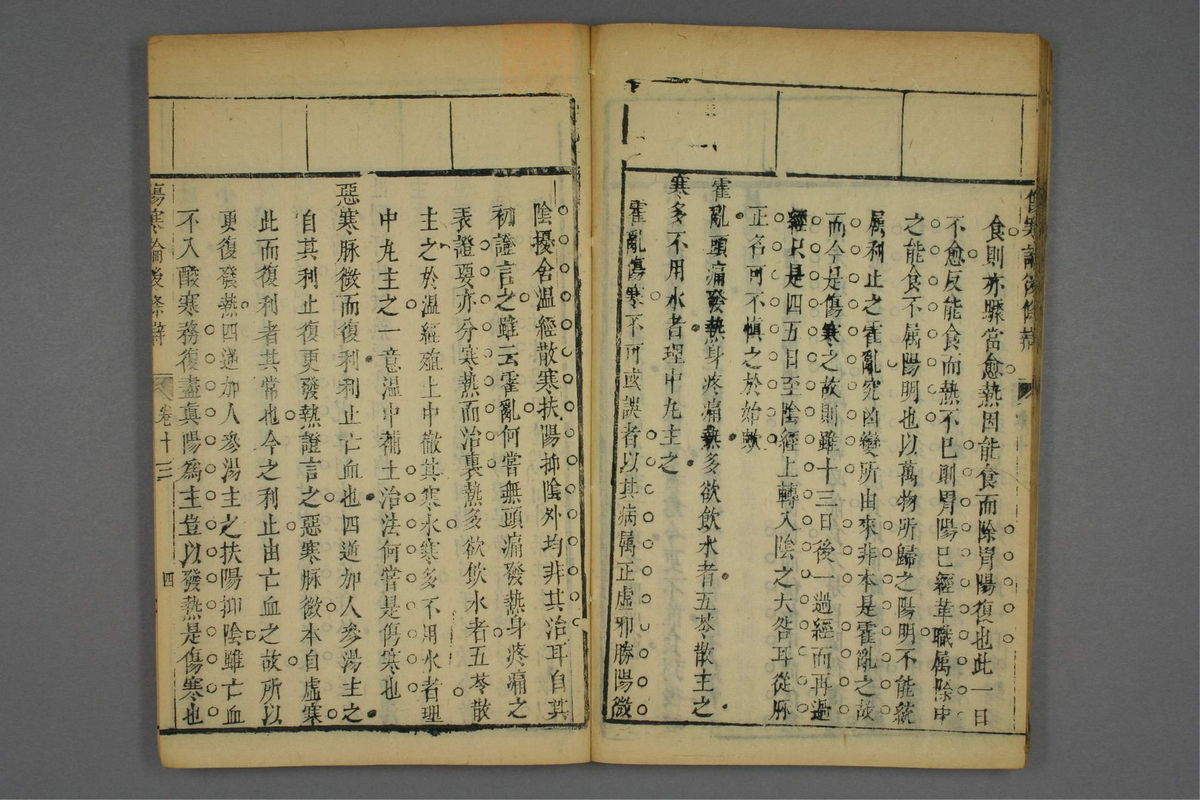 傷寒論後條辨
食則亦驟當愈熱因能食而除胃陽復也此一日
不愈反能食而熱不已則胃陽已經革職属除中
之能食不属陽明也以萬物所歸之陽明不能統
属利止之霍亂究凶變所由來非本是霍亂之故
而今是傷寒之故則雖十三日後一過經而再過
經只是四五日至陰經上轉入陰之大咎耳從脉
正名可不慎之於始歟
霍亂頭痛發熱身疼痛熱多欲飲水者五苓散主之
寒多不用水者理中丸主之
霍亂傷寒不可或誤者以其病属正虛邪勝陽微
陰擾舍温經散寒扶陽抑陰外均非其治耳自其
初證言之雖云霍亂何嘗無頭痛發熱身疼痛之
表證要亦分寒熱而治裏熱多欲飲水者五苓散
主之於温經殖土中徹其寒水寒多不用水者理
中丸主之一意温中補土治法何嘗是傷寒也
惡寒脉微而復利利止亡血也四逆加人參湯主之
自其利止復更發熱證言之惡寒脉微本自虛寒
此而復利者其常也今之利止由亡血之故所以
更復發熱四逆加人參湯主之扶陽抑陰雖亡血
不入酸寒務復盡真陽爲主豈以發熱是傷寒也
傷寒論後條辨 卷十三 四